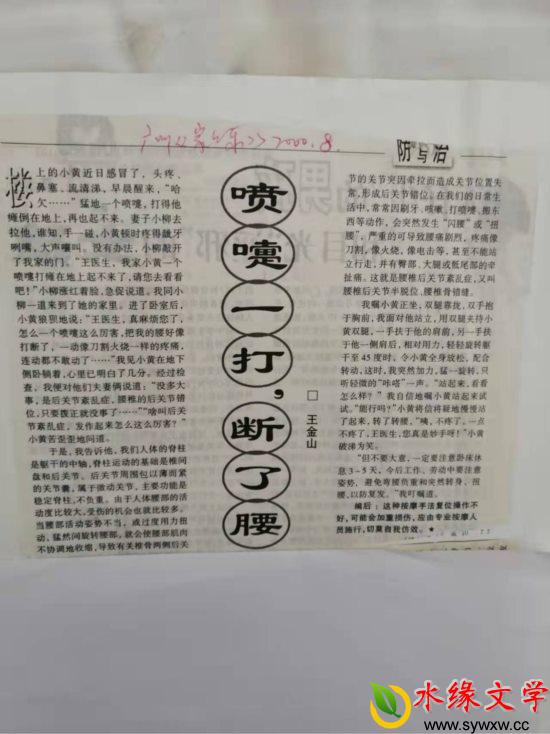 2000.8.
防与治
喷嚏一打，断了腰
□ 王金山
楼上的小黄近日感冒了，头疼、
鼻塞、流清涕，早晨醒来，“哈
欠……”猛地一个喷嚏，打得他
瘫倒在地上，再也起不来。妻子小柳去
拉他，谁知，手一碰，小黄顿时疼得龇牙
咧嘴，大声嚷叫。没有办法，小柳敲开
了我家的门。“王医生，我家小黄一个
喷嚏打瘫在地上起不来了，请您去看看
吧！”小柳涨红着脸，急促说道。我同小
柳一道来到了她的家里。进了卧室后，
小黄狼狈地说：“王医生，真麻烦您了，
怎么一个喷嚏这么厉害，把我的腰好像
打断了，一动像刀割火烧一样的疼痛，
连动都不敢动了……”我见小黄在地下
侧卧躺着，心里已明白了几分。经过检
查，我便对他们夫妻俩说道：“没多大
事，是后关节紊乱症，腰椎的后关节错
位，只要拨正就没事了……”“啥叫后关
节紊乱症，发作起来怎么这么厉害？”
小黄苦歪歪地问道。
于是，我告诉他，我们人体的脊柱
是躯干的中轴，脊柱运动的基础是椎间
盘和后关节。后关节周围包以薄而紧
的关节囊，属于微动关节，主要功能是
稳定脊柱，不负重。由于人体腰部的活
动度比较大，受伤的机会也就比较多。
当腰部活动姿势不当，或过度用力扭
动，猛然间旋转腰部，就会使腰部肌肉
不协调地收缩，导致有关椎骨两侧后关
节的关节突因牵拉而造成关节位置失
常，形成后关节错位。在我们的日常生
活中，常常因刷牙、咳嗽、打喷嚏、搬东
西等动作，会突然发生“闪腰”或“扭
腰”，严重的可导致腰痛剧烈，疼痛像
刀割，像火烧，像电击等，甚至不能站
立行走，并有臀部、大腿或骶尾部的牵
扯痛。这就是腰椎后关节紊乱症，又叫
腰椎后关节半脱位，腰椎骨错缝。
我嘱小黄正坐，双腿靠拢，双手抱
于胸前，我面对他站立，用双腿夹持小
黄双腿，一手扶于他的肩前，另一手扶
于他一侧肩后，相对用力，轻轻旋转躯
干至45度时，令小黄全身放松，配合
转动，这时，我突然加力，猛一旋转，只
听轻微的“咔嗒”一声。“站起来，看看
怎么样？”我自信地嘱小黄站起来试
试。“能行吗？”小黄将信将疑地慢慢站
了起来，转了转腰，“咦，不疼了，一点
不疼了，王医生，您真是妙手呀！”小黄
破涕为笑。
“但不要大意，一定要注意卧床休
息3-5天，今后工作、劳动中要注意
姿势，避免弯腰负重和突然转身、扭
腰，以防复发。”我叮嘱道。
编后：这种按摩手法复位操作不
好，可能会加重损伤，应由专业按摩人
员施行，切莫自我仿效。★
水缘文学
www.sywxw.cc